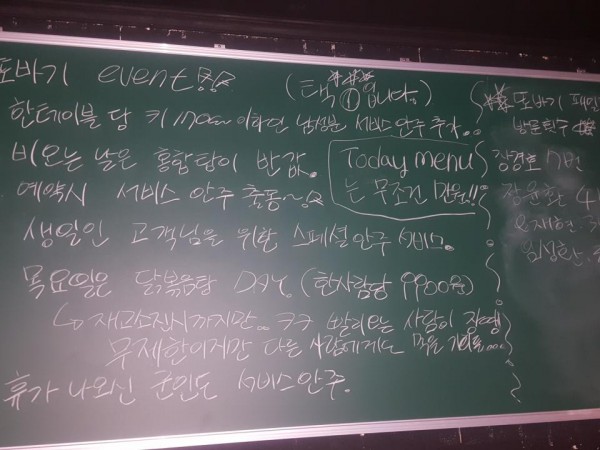 또바기 event
(택 1 입니다.)
한테이블 당 키 170cm 이하면 남성분 서비스 안주 추가..
비오는 날은 홍합탕이 반값.
Today menu
는 무조건 1만원!!
예약시 서비스 안주 출동~
생일인 고객님을 위한 스페셜 안주 서비스.
목요일은 닭볶음탕 DAY. (한사람당 9900원)
↳ 재고소진시까지만.. ㅋㅋ 빨리먹는 사람이 장땡
무제한이지만 다른 사람에게도 먹을 기회를...
휴가 나오신 군인도 서비스안주.
또바기
방문횟수
장경호 7번